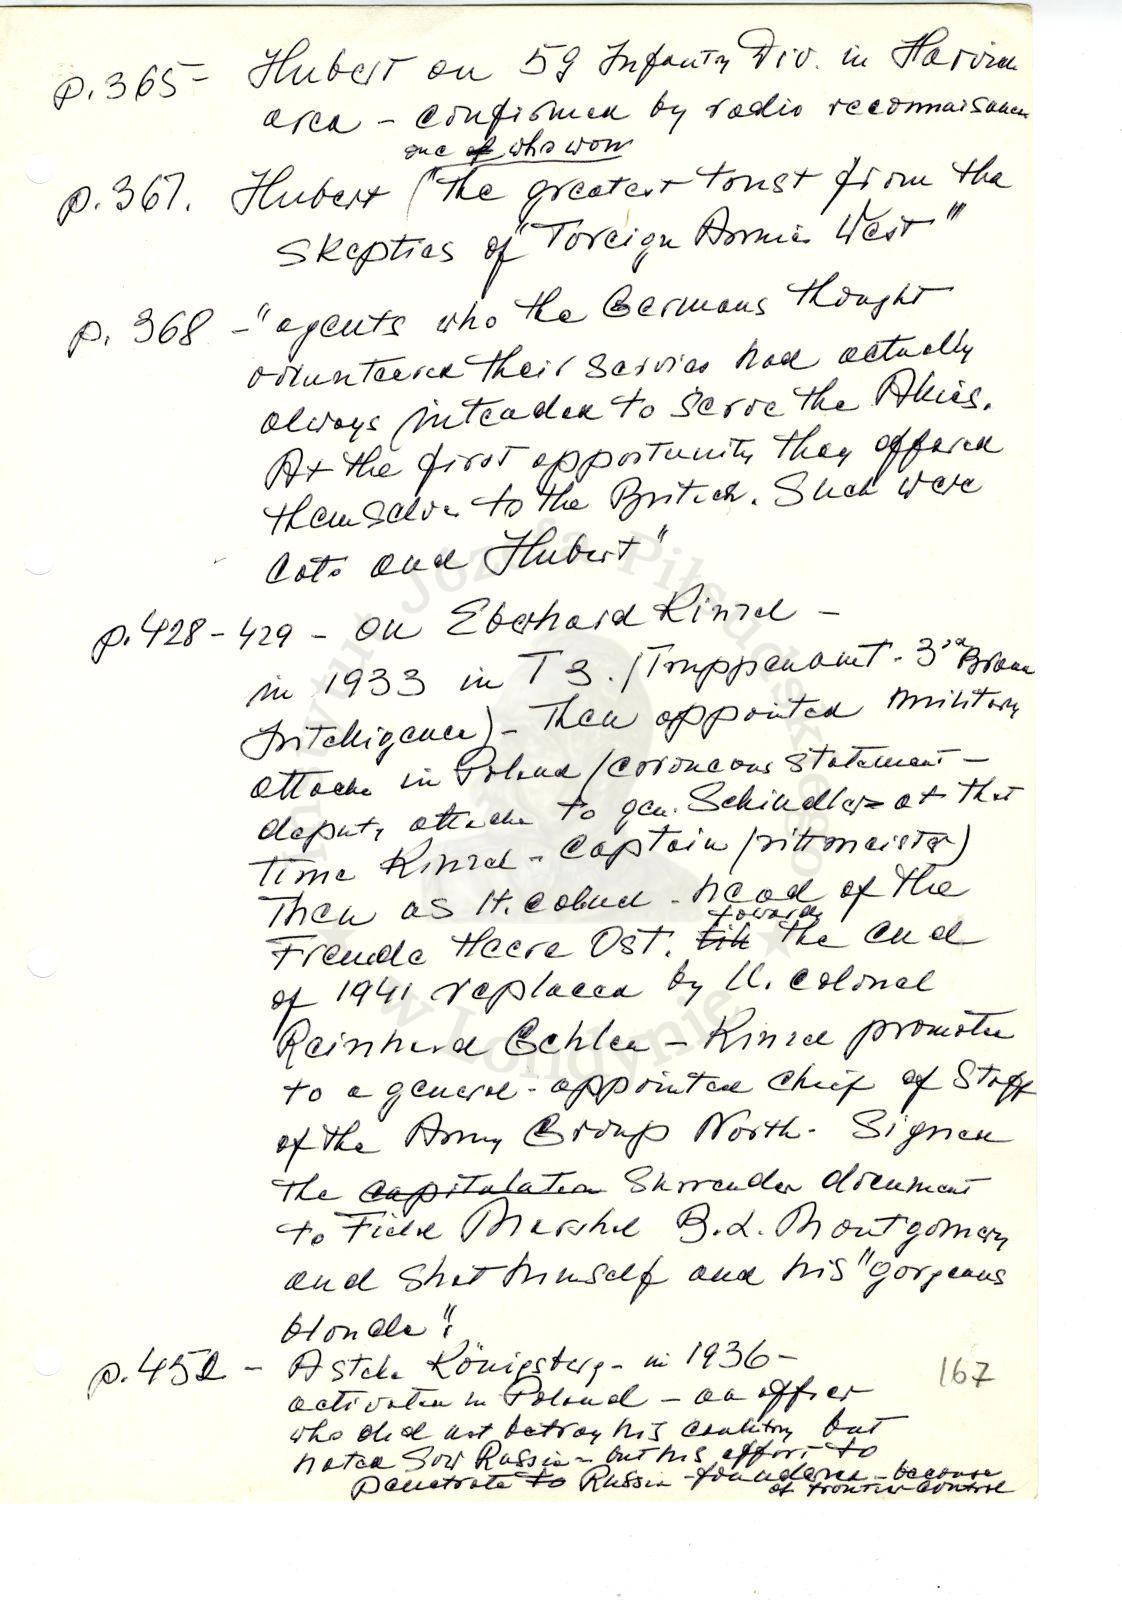 p.365 - Hubert on 59 Infantry Div. in Harwich
area - confirmed by radio reconnaissance
one of who won
p.367. Hubert ("The greatest trust from the
skeptics of "Foreign Armies West""
p. 368 - "agents who the Germans thought
volunteered their services had actually
always intended to serve the Allies.
At the first opportunity they offered
themselves to the British. Such were
Cato and Hubert"
p.428-429 - on Eberhard Kinzel -
in 1933 in T 3. (Truppenamt - 3rd Branch
Intelligence) - Then appointed military
attache in Poland (erroneous statement -
deputy attache to gen. Schindler at that
time Kinzel - Captain (rittmeister)
Then as lt. colonel - head of the
Fremde Heere Ost. till towards the end
of 1941 replaced by lt. colonel
Reinhard Gehlen - Kinzel promoted
to a general - appointed chief of Staff
of the Army Group North - Signed
the capitulation Surrender document
to Field Marshal B.L. Montgomery
and shot himself and his "gorgeous
blonde".
p.452 - Astelle Königsberg - in 1936 -
activated in Poland - an officer
who did not betray his country but
hated Sov Russia - but his effort to
penetrate to Russia - foundered - because
of frontier control
167
Instytut Józefa Piłsudskiego
w Londynie